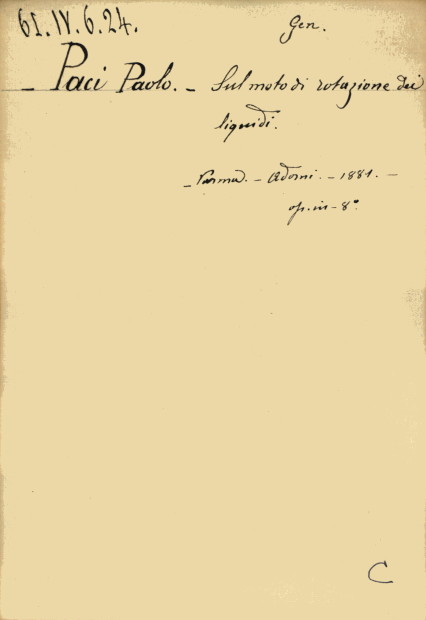 61.IV.6.24.
Gen.
- Paci Paolo. - Sul moto di rotazione dei
liquidi.
- Parma. - Adorni. - 1881. -
op. in - 8º.
C